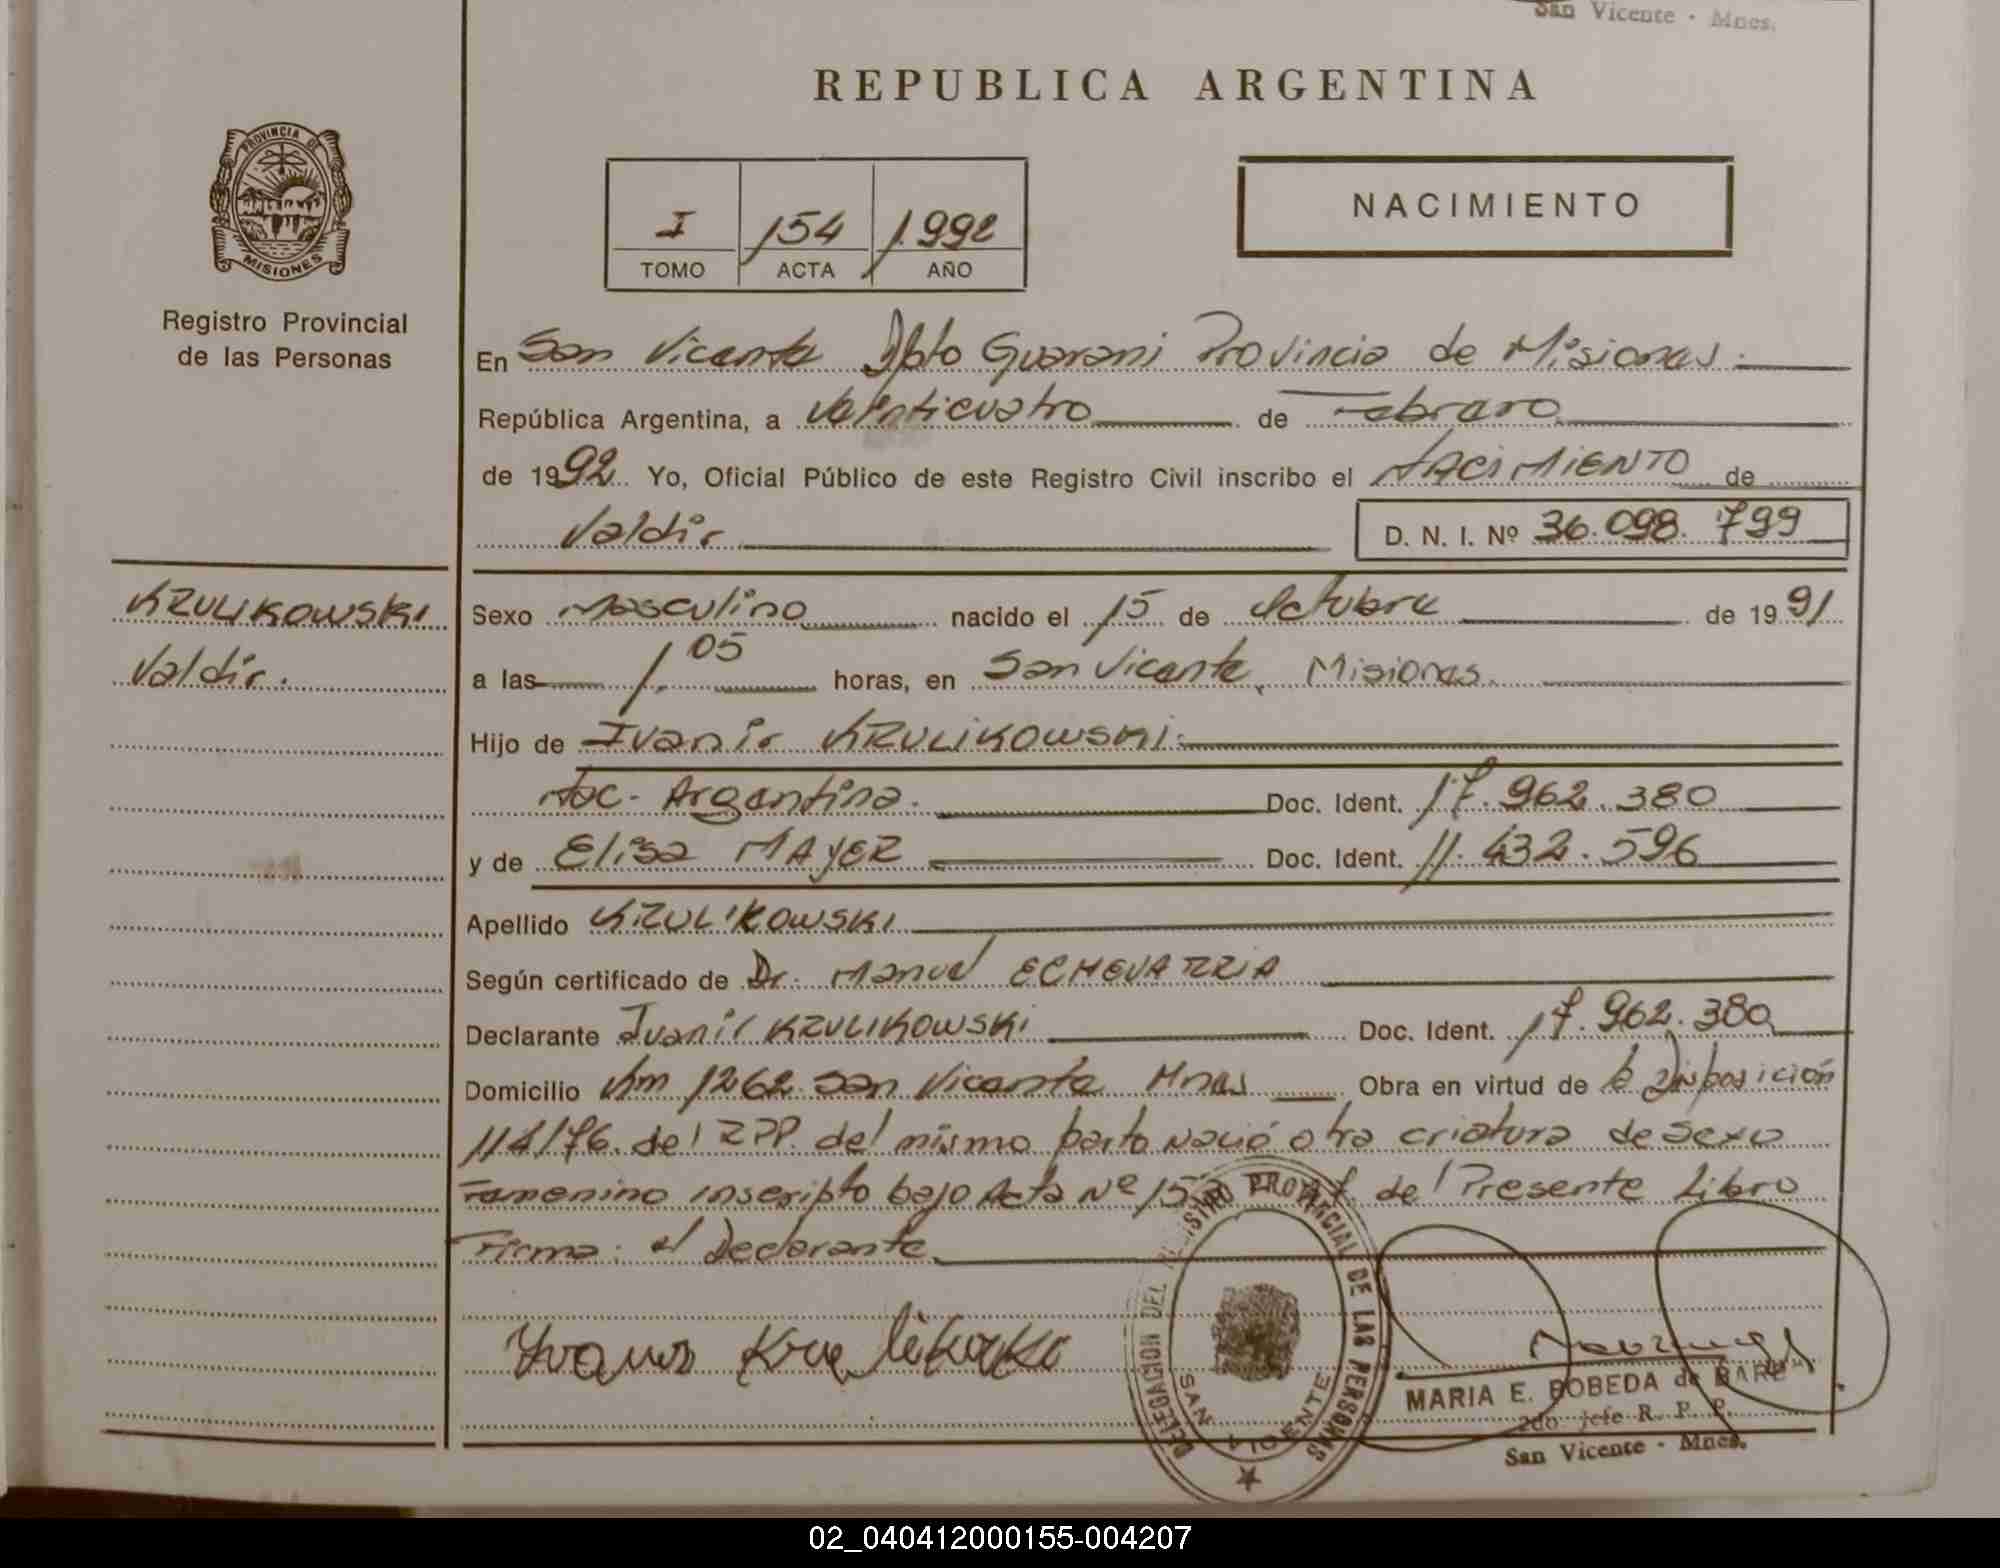 San Vicente - Mnes.
REPUBLICA ARGENTINA
PROVINCIA DE
MISIONES
Registro Provincial
de las Personas
I 154 1992
TOMO ACTA AÑO
NACIMIENTO
En San Vicente Dpto Guarani Provincia de Misiones.
República Argentina, a Veinticuatro de Febrero
de 1992. Yo, Oficial Público de este Registro Civil inscribo el NACIMIENTO de
Valdir D. N. I. Nº 36.098.799
KRULIKOWSKI
Valdir.
Sexo Masculino nacido el 15 de Octubre de 1991
a las 1,05 horas, en San Vicente, Misiones.
Hijo de Ivanir KRULIKOWSKI.
Nac. Argentina. Doc. Ident. 17.962.380
y de Elisa MAYER Doc. Ident. 11.432.596
Apellido KRULIKOWSKI
Según certificado de Dr. Manuel ECHEVARRIA
Declarante Ivanir KRULIKOWSKI Doc. Ident. 17.962.380
Domicilio Km 1262 San Vicente Mnes Obra en virtud de la Disposición
114/76. del RPP. del mismo parto nació otra criatura de sexo
Femenino inscripto bajo Acta Nº del Presente Libro
Firma: el Declarante.
DELEGACION DEL REGISTRO PROVINCIAL DE LAS PERSONAS
SAN VICENTE
MARIA E. BOBEDA de
2do Jefe R. P. P.
San Vicente - Mnes.
02_040412000155-004207